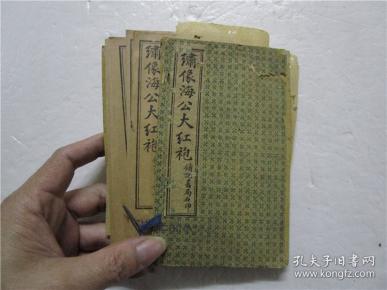 繡像海公大紅袍
錦章書局石印
繡像海公大紅袍
孔夫子旧书网
www.kongfz.com